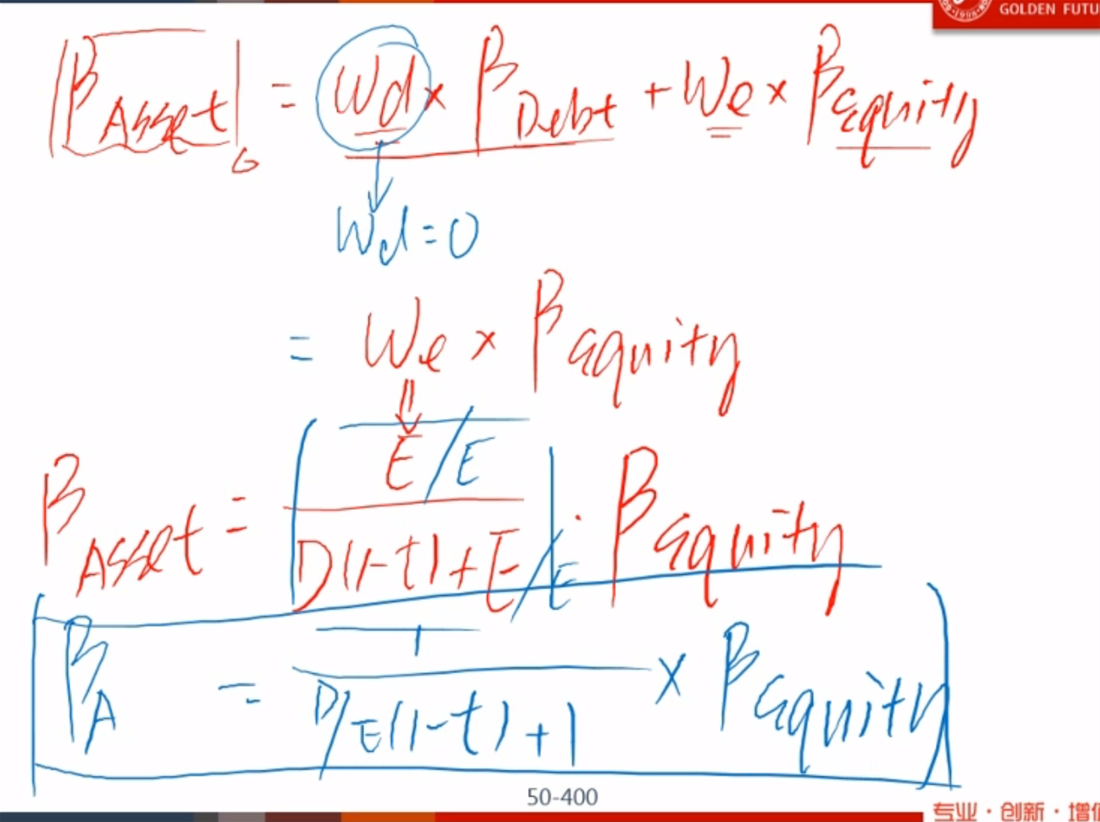 GOLDEN FUTU
β Asset = Wd × β Debt + We × β Equity
Wd = 0
= We × β Equity
β Asset = E/E / D(1-t)+E/E · β Equity
β A = 1 / D/E(1-t)+1 × β Equity
50-400
专业・创新・增值